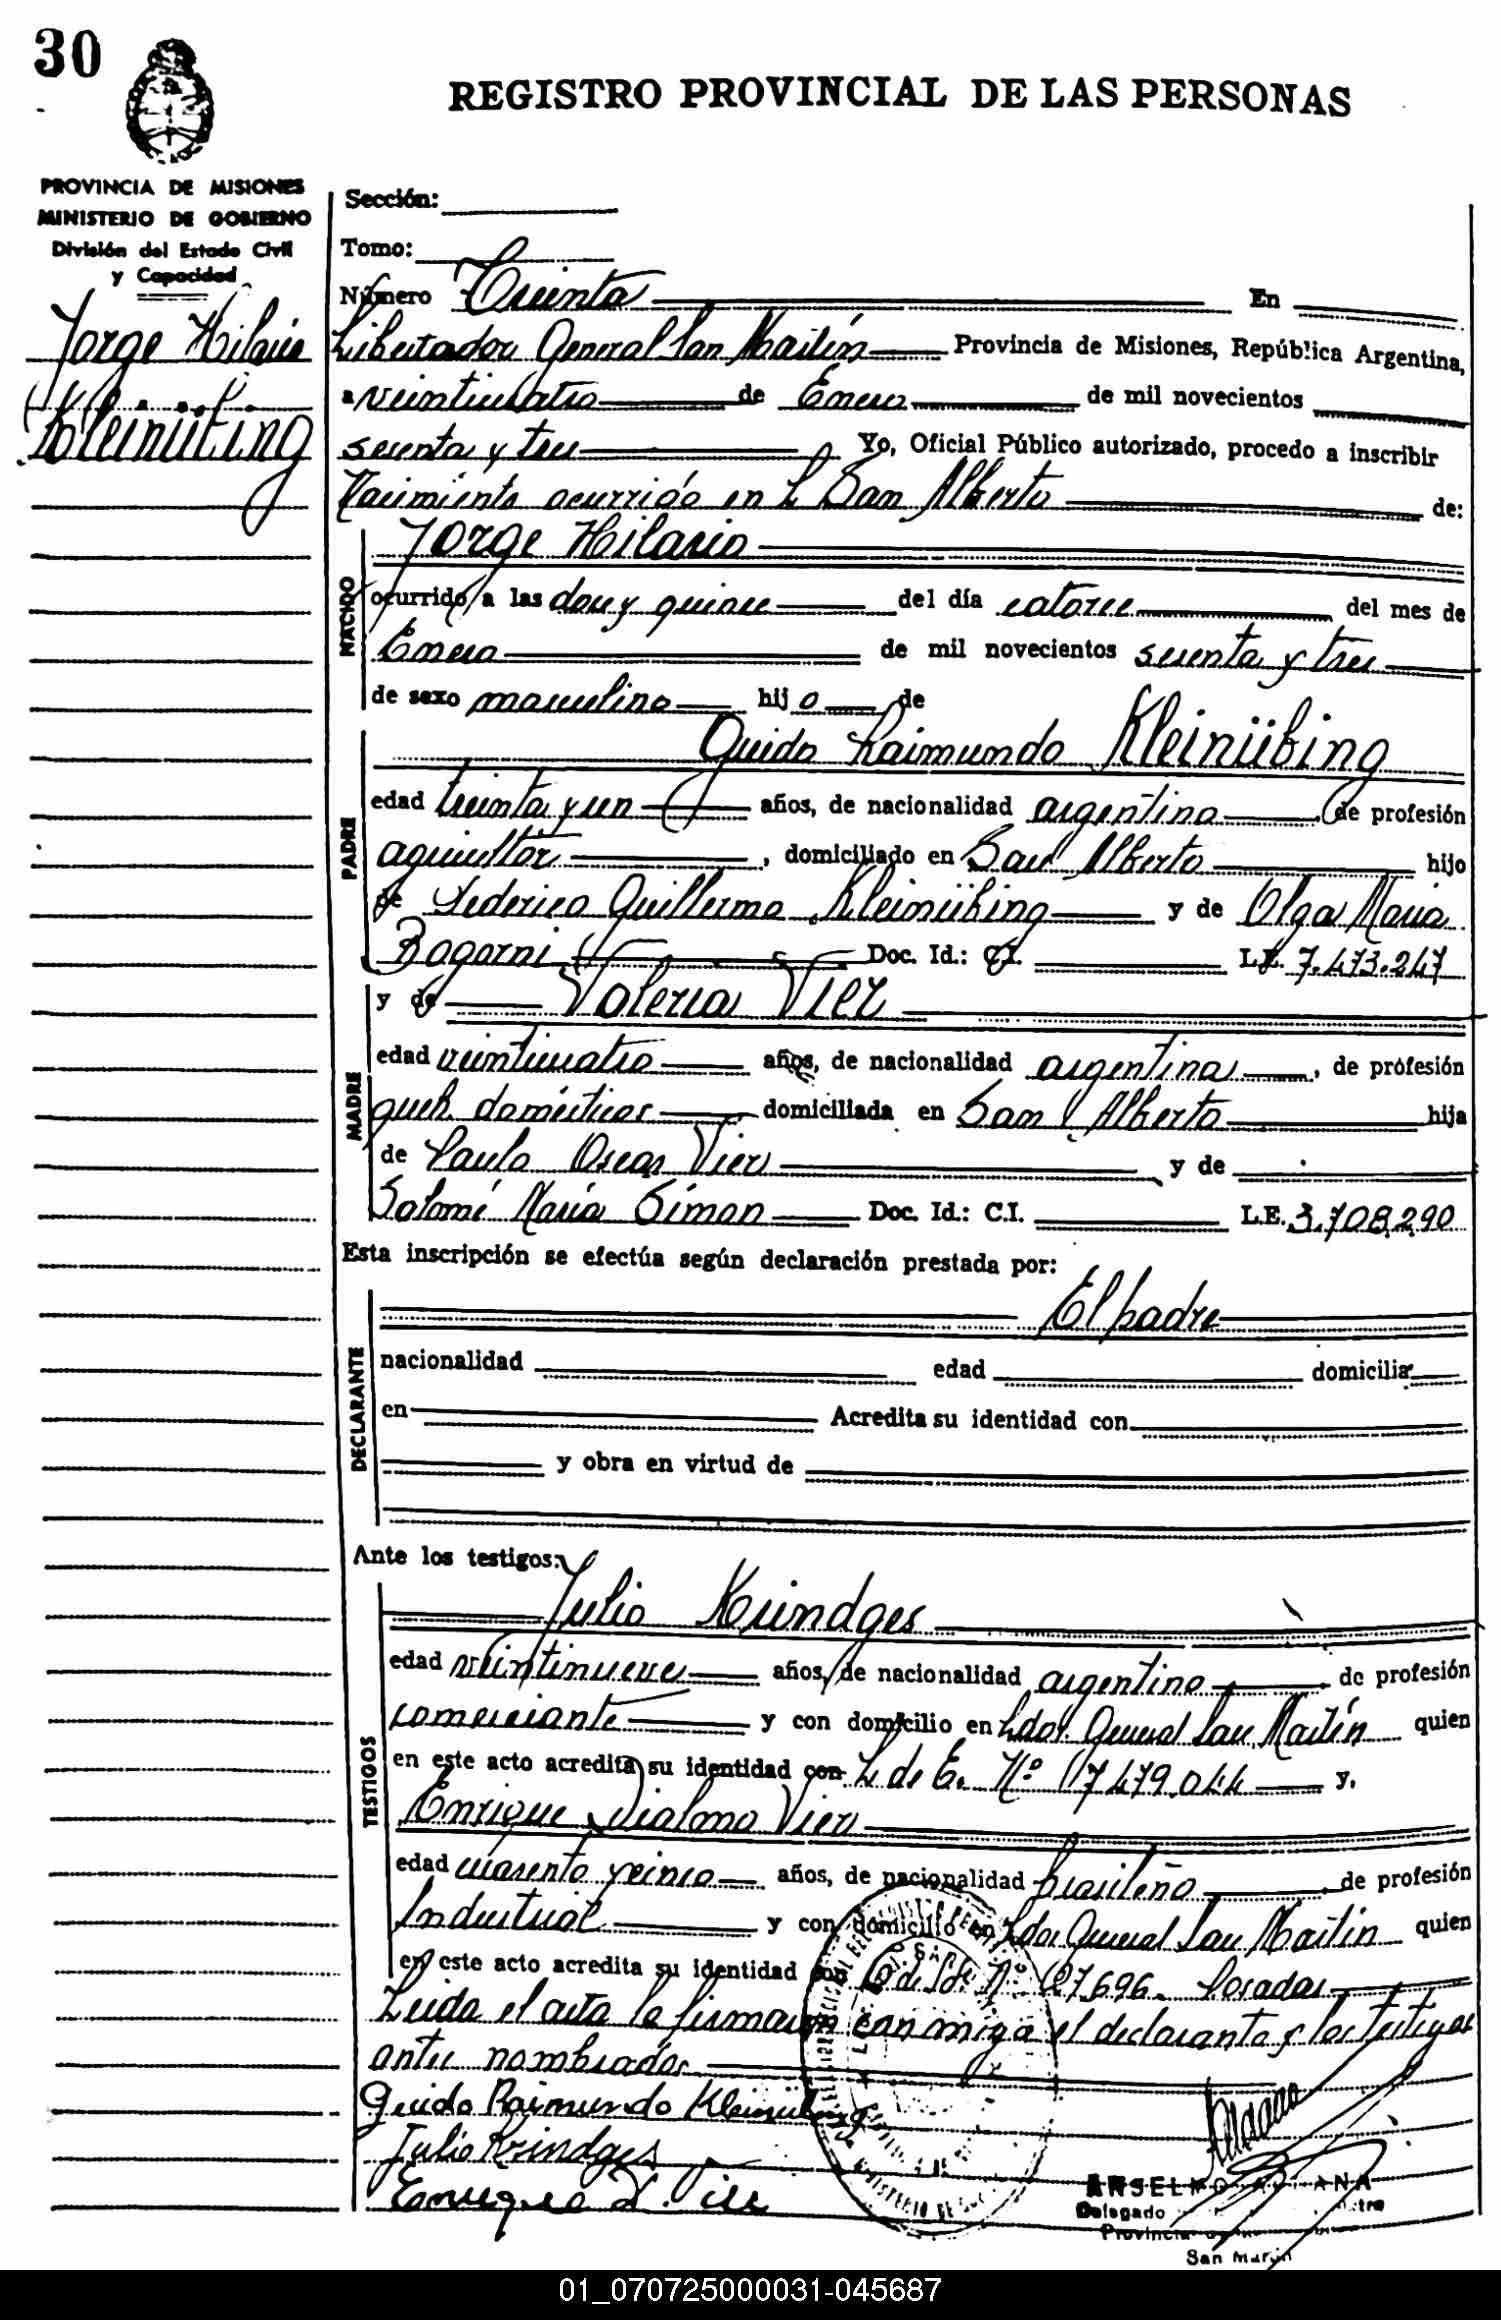 30
REGISTRO PROVINCIAL DE LAS PERSONAS
PROVINCIA DE MISIONES
MINISTERIO DE GOBIERNO
División del Estado Civil
y Capacidad
Jorge Hilario
Kleinübing
Sección:
Tomo:
Número Treinta En
Libertador General San Martín Provincia de Misiones, República Argentina,
a veinticuatro de Enero de mil novecientos
sesenta y tres Yo, Oficial Público autorizado, procedo a inscribir
Nacimiento ocurrido en L San Alberto de:
NACIDO
Jorge Hilario
ocurrido a las dos y quince del día catorce del mes de
Enero de mil novecientos sesenta y tres
de sexo masculino hijo de
PADRE
Guido Raimundo Kleinübing
edad treinta y un años, de nacionalidad argentina de profesión
agricultor, domiciliado en San Alberto hijo
de Federico Guillermo Kleinübing y de Olga Maria
Bogorni Doc. Id.: C.I. L.E. 7.473.247
MADRE
y de Valeria Vier
edad veinticuatro años, de nacionalidad argentina, de profesión
queh. domésticos domiciliada en San Alberto hija
de Paulo Oscar Vier y de
Salomé María Simon Doc. Id.: C.I. L.E. 3.708.290
Esta inscripción se efectúa según declaración prestada por:
DECLARANTE
El padre
nacionalidad edad domicilia
en Acredita su identidad con
y obra en virtud de
Ante los testigos:
TESTIGOS
Julio Krindges
edad veintinueve años, de nacionalidad argentina de profesión
comerciante y con domicilio en Ldor. General San Martín quien
en este acto acredita su identidad con L. de E. Nº 7.479.044 y,
Enrique Dialmo Vier
edad cuarenta y cinco años, de nacionalidad brasileña de profesión
Industrial y con domicilio en Ldor General San Martin quien
en este acto acredita su identidad con C. de Id. Nº 127.696. Posadas
Leida el acta la firmaron conmigo el declarante y los testigos
antes nombrados
Guido Raimundo Kleinübing
Julio Krindges
Enrique D. Vier
ANSELMO
Delegado
Provincia
San Martín
01_070725000031-045687